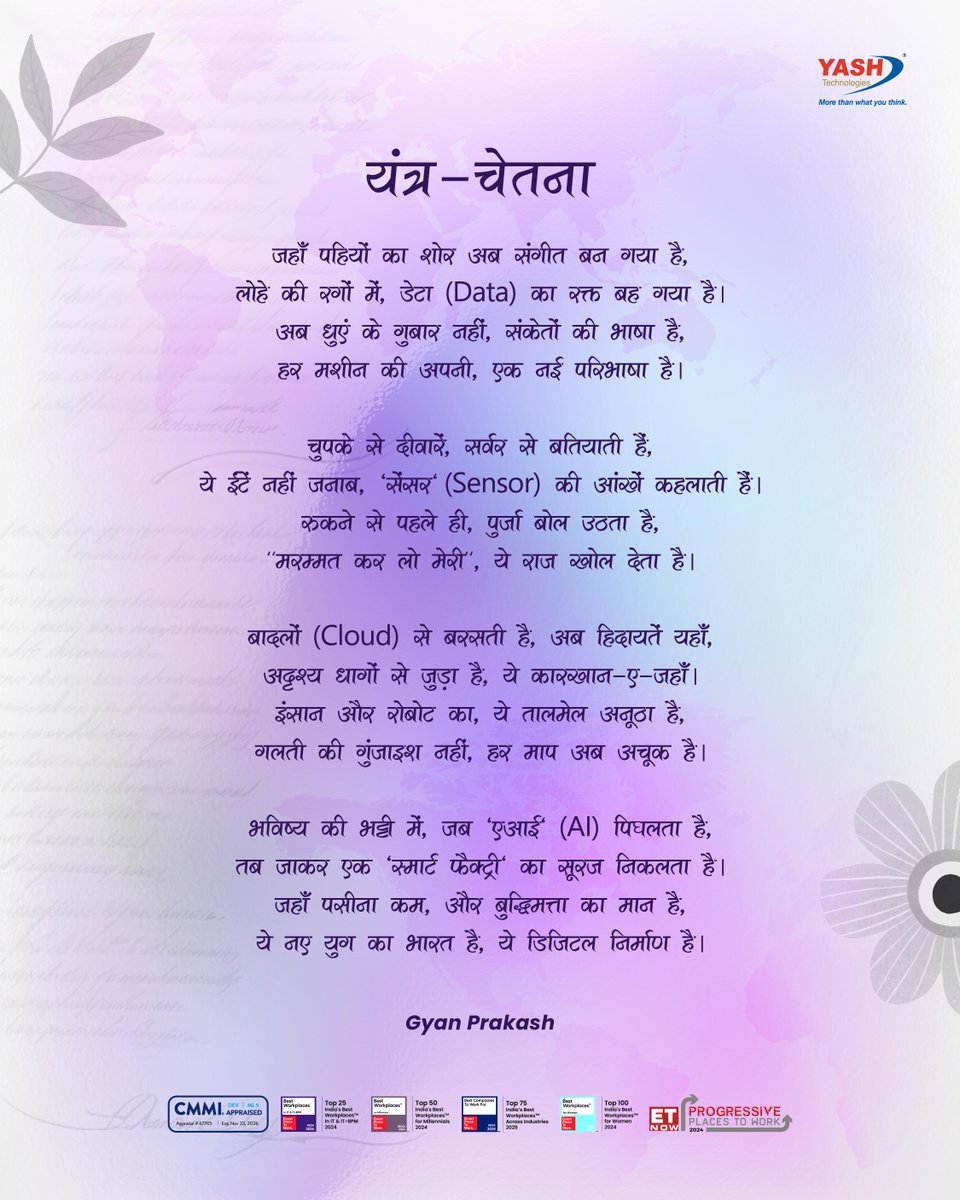 YASH
Technologies
More than what you think.
यंत्र-चेतना
जहाँ पहियों का शोर अब संगीत बन गया है,
लोहे की रगों में, डेटा (Data) का रक्त बह गया है।
अब धुएं के गुबार नहीं, संकेतों की भाषा है,
हर मशीन की अपनी, एक नई परिभाषा है।
चुपके से दीवारें, सर्वर से बतियाती हैं,
ये ईंटें नहीं जनाब, 'सेंसर' (Sensor) की आंखें कहलाती हैं।
रुकने से पहले ही, पुर्जा बोल उठता है,
"मरम्मत कर लो मेरी", ये राज खोल देता है।
बादलों (Cloud) से बरसती है, अब हिदायतें यहाँ,
अदृश्य धागों से जुड़ा है, ये कारखान-ए-जहाँ।
इंसान और रोबोट का, ये तालमेल अनूठा है,
गलती की गुंजाइश नहीं, हर माप अब अचूक है।
भविष्य की भट्टी में, जब 'एआई' (AI) पिघलता है,
तब जाकर एक 'स्मार्ट फैक्ट्री' का सूरज निकलता है।
जहाँ पसीना कम, और बुद्धिमत्ता का मान है,
ये नए युग का भारत है, ये डिजिटल निर्माण है।
Gyan Prakash
CMMI DEV | ML 5 APPRAISED
Appraisal # 67765 | Exp. Nov 23, 2026
Best Workplaces™ in IT & IT-BPM
Top 25 India's Best Workplaces™ in IT & IT-BPM 2024
Best Workplaces™
Top 50 India's Best Workplaces™ for Millennials 2024
Best Companies To Work For
Top 75 India's Best Workplaces™ Across Industries 2025
Best Workplaces™
Top 100 India's Best Workplaces™ for Women 2024
ET NOW PROGRESSIVE PLACES TO WORK 2024